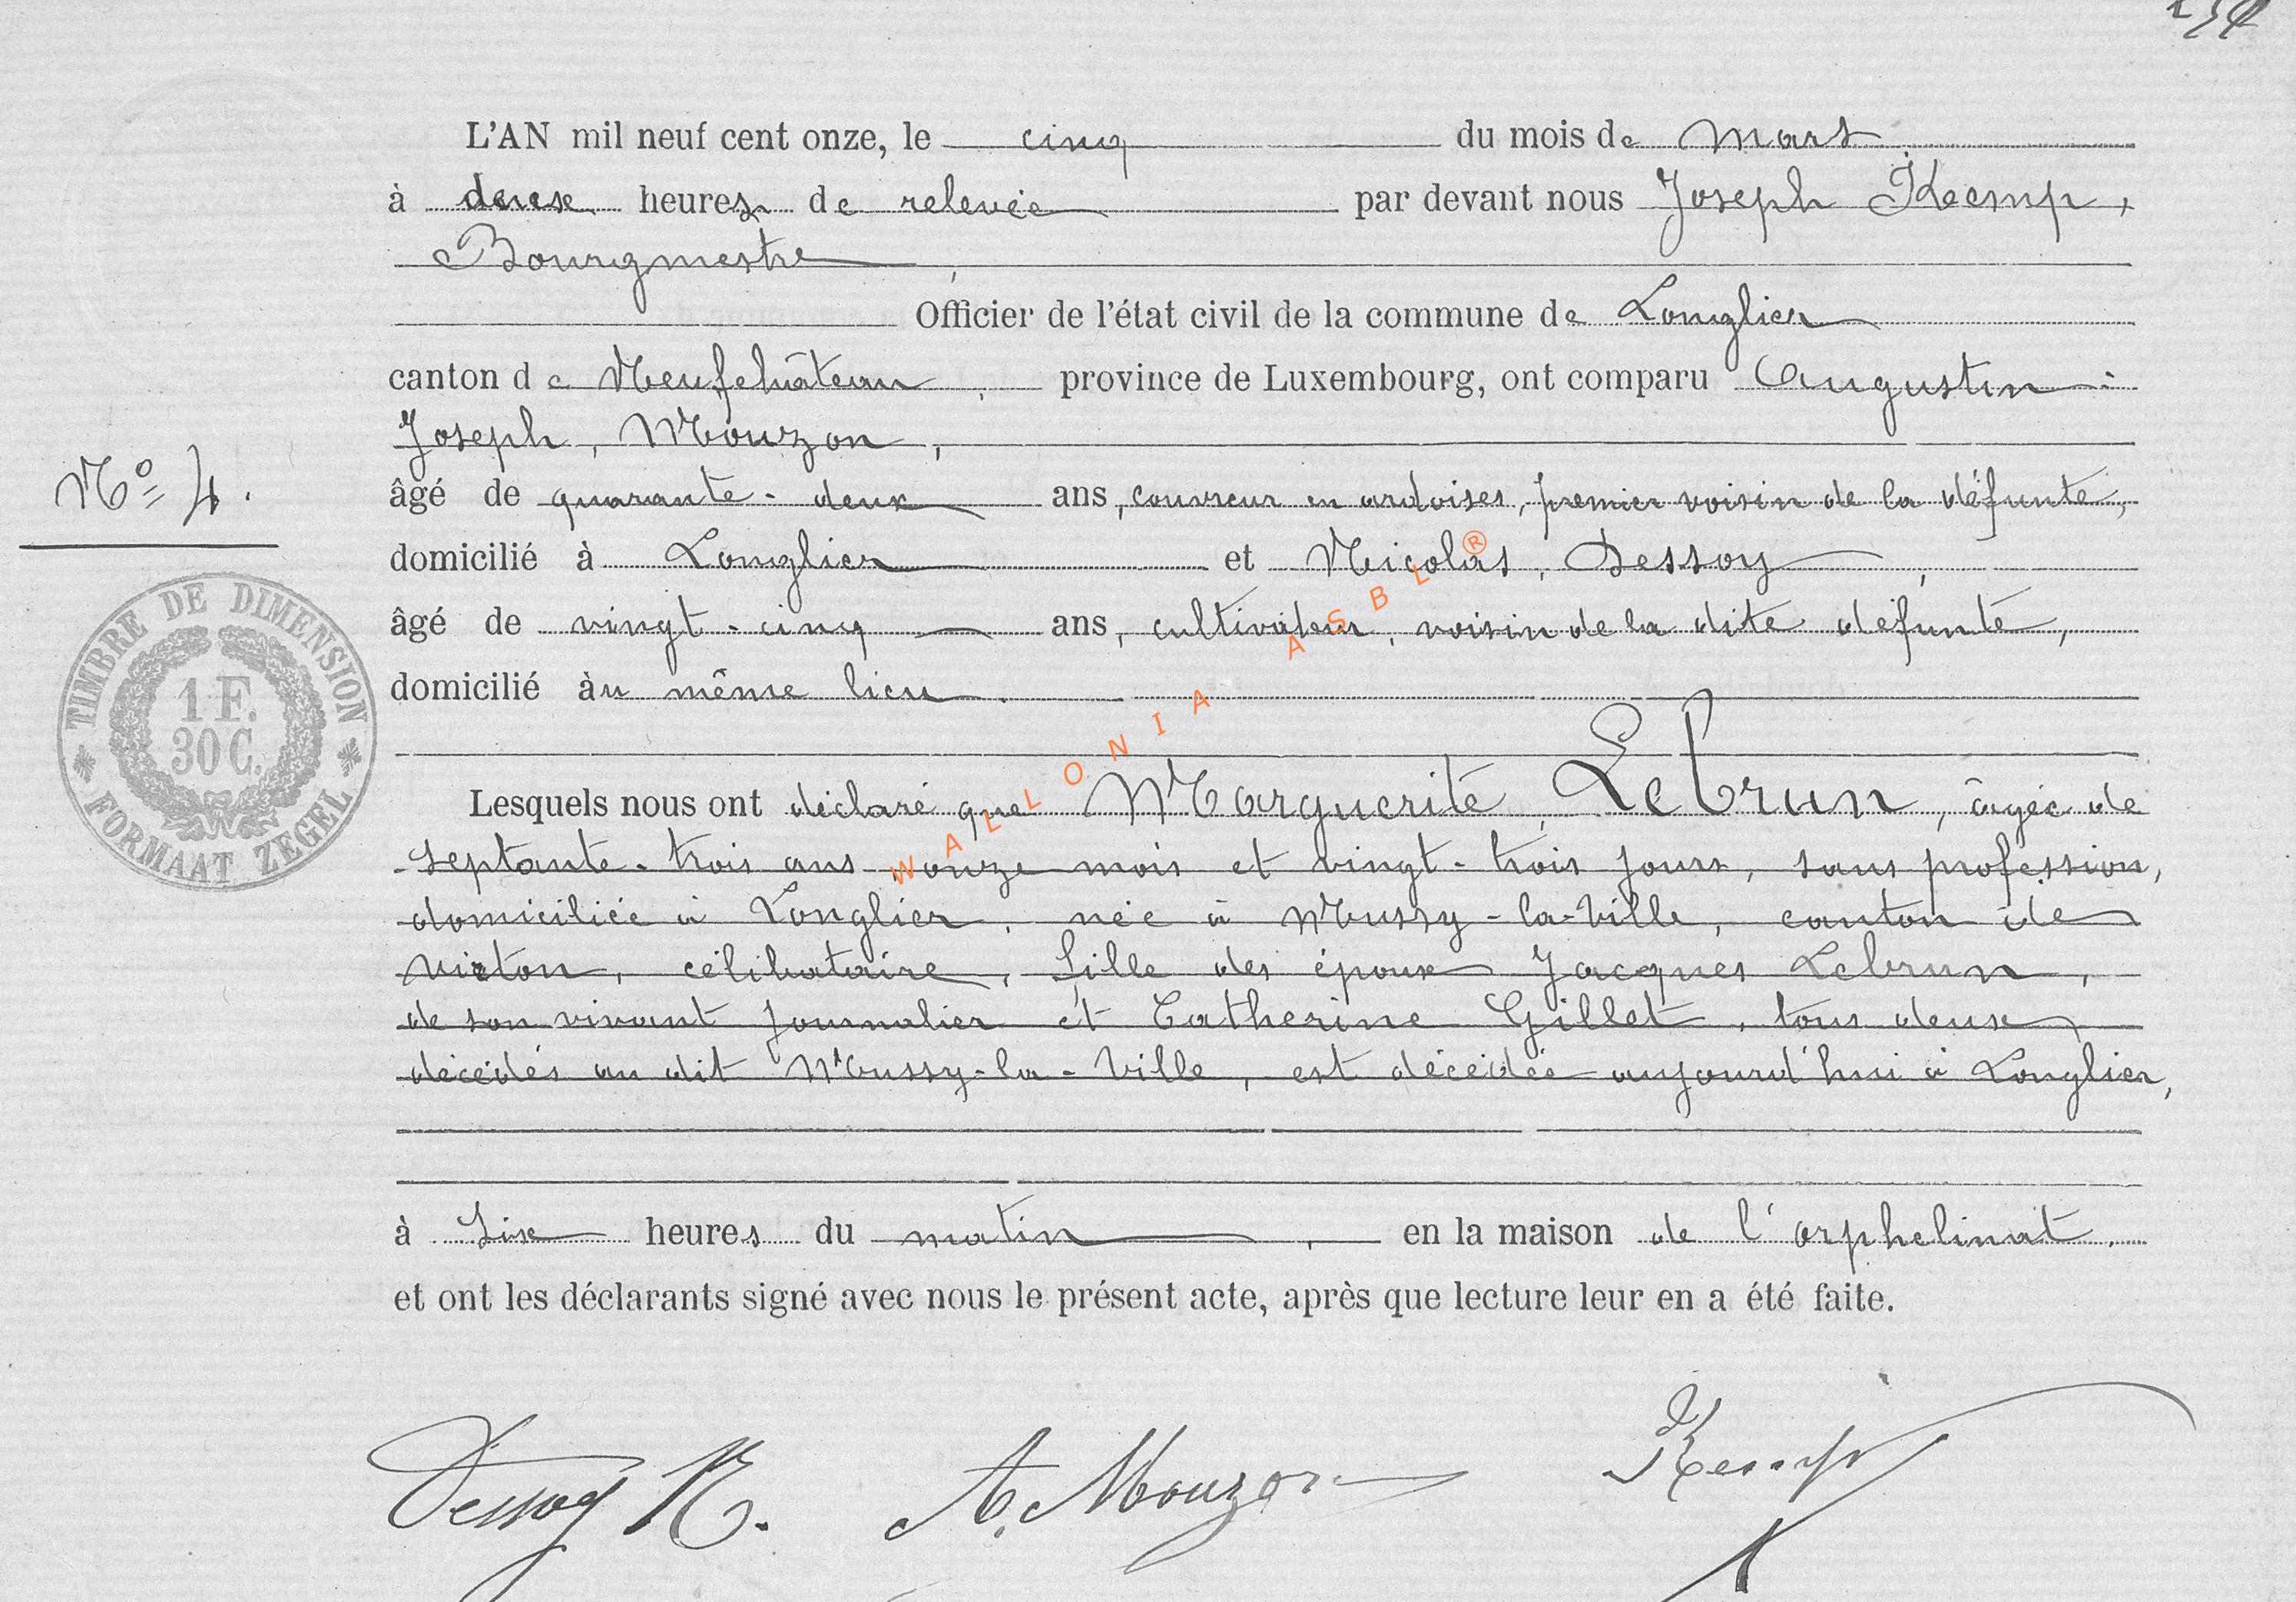 L'AN mil neuf cent onze, le cinq du mois de mars
à deux heures de relevée par devant nous Joseph Kemp,
Bourgmestre,
Officier de l'état civil de la commune de Longlier
canton de Neufchâteau, province de Luxembourg, ont comparu Augustin-
Joseph, Mouzon,
âgé de quarante-deux ans, couvreur en ardoises, premier voisin de la défunte,
domicilié à Longlier et Nicolas, Dessoy,
âgé de vingt-cinq ans, cultivateur, voisin de la dite défunte,
domicilié au même lieu.
Lesquels nous ont déclaré que Marguerite, Lebrun, âgée de
septante-trois ans onze mois et vingt-trois jours, sans profession,
domiciliée à Longlier, née à Mussy-la-Ville, canton de
Virton, célibataire, fille des époux Jacques Lebrun,
de son vivant journalier et Catherine Gillet, tous deux
décédés au dit Mussy-la-Ville, est décédée aujourd'hui à Longlier,
à six heures du matin, en la maison de l'orphelinat.
et ont les déclarants signé avec nous le présent acte, après que lecture leur en a été faite.
Dessoy N. A. Mouzon Kemp
No 4.
TIMBRE DE DIMENSION
1 F.
30 C.
FORMAAT ZEGEL
WALLONIA ASBL ®